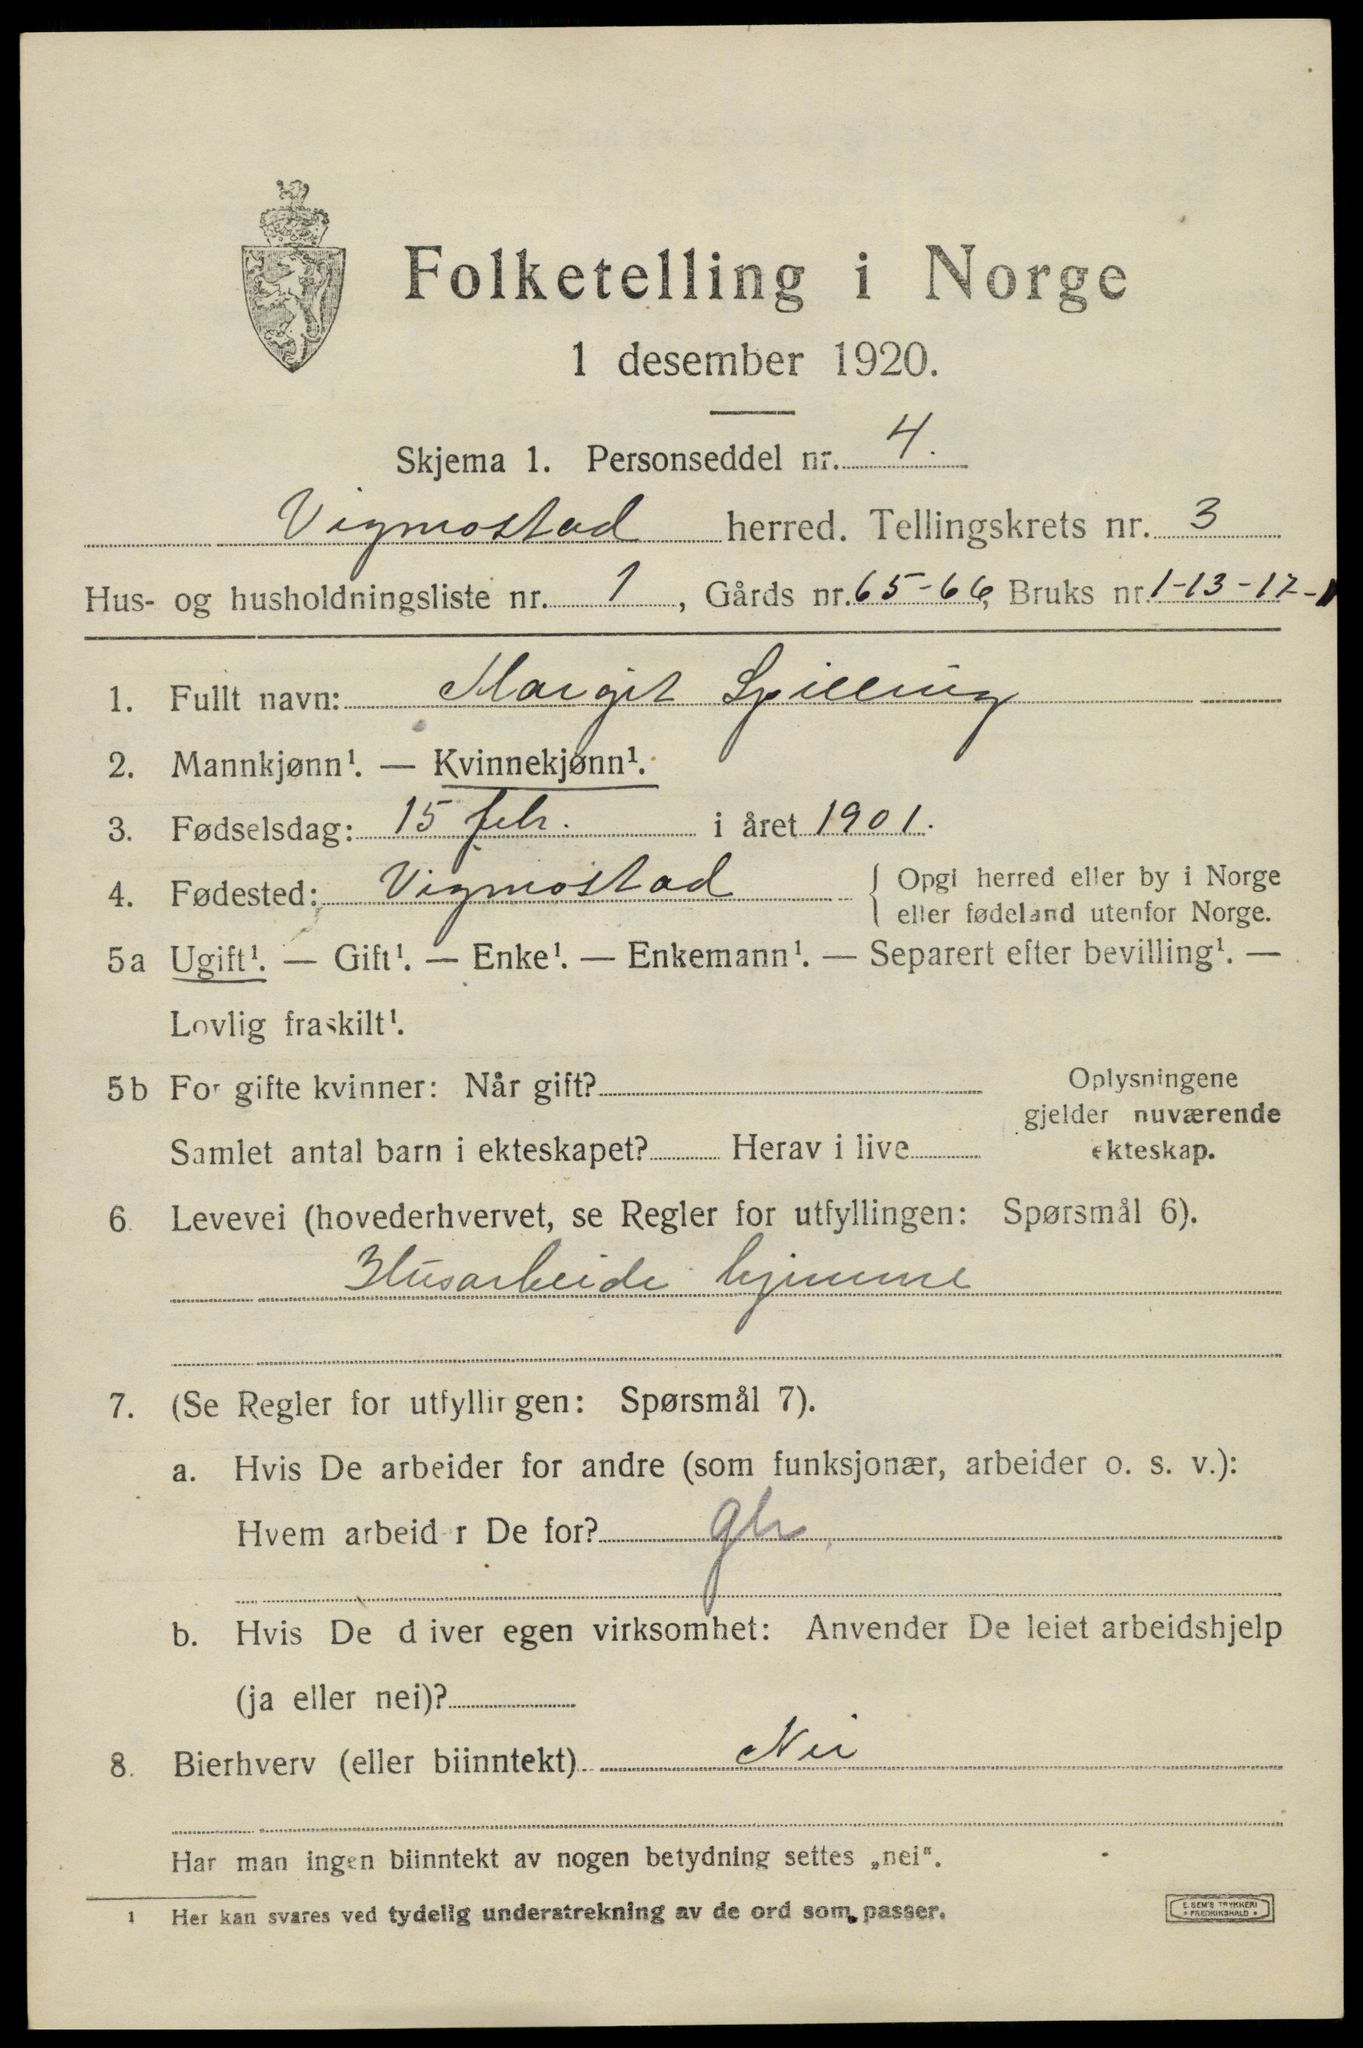 Folketelling i Norge
1 desember 1920.
Skjema 1. Personseddel nr. 4.
Vigmostad herred. Tellingskrets nr. 3
Hus- og husholdningsliste nr. 1, Gårds nr. 65-66, Bruks nr. 1-13-17-1
1. Fullt navn: Margit Spilling
2. Mannkjønn¹. — Kvinnekjønn¹.
3. Fødselsdag: 15 febr. i året 1901.
4. Fødested: Vigmostad { Opgi herred eller by i Norge
eller fødeland utenfor Norge.
5a Ugift¹. — Gift¹. — Enke¹. — Enkemann¹. — Separert efter bevilling¹. —
Lovlig fraskilt¹.
5b For gifte kvinner: Når gift? Oplysningene
gjelder nuværende
Samlet antal barn i ekteskapet? Herav i live ekteskap.
6. Levevei (hovederhvervet, se Regler for utfyllingen: Spørsmål 6).
Husarbeide hjemme
7. (Se Regler for utfyllingen: Spørsmål 7).
a. Hvis De arbeider for andre (som funksjonær, arbeider o. s. v.):
Hvem arbeid r De for? gbr
b. Hvis De d iver egen virksomhet: Anvender De leiet arbeidshjelp
(ja eller nei)?
8. Bierhverv (eller biinntekt) Nei
Har man ingen biinntekt av nogen betydning settes „nei“.
1 Her kan svares ved tydelig understrekning av de ord som passer.
E. SEM'S TRYKKERI
FREDRIKSHALD